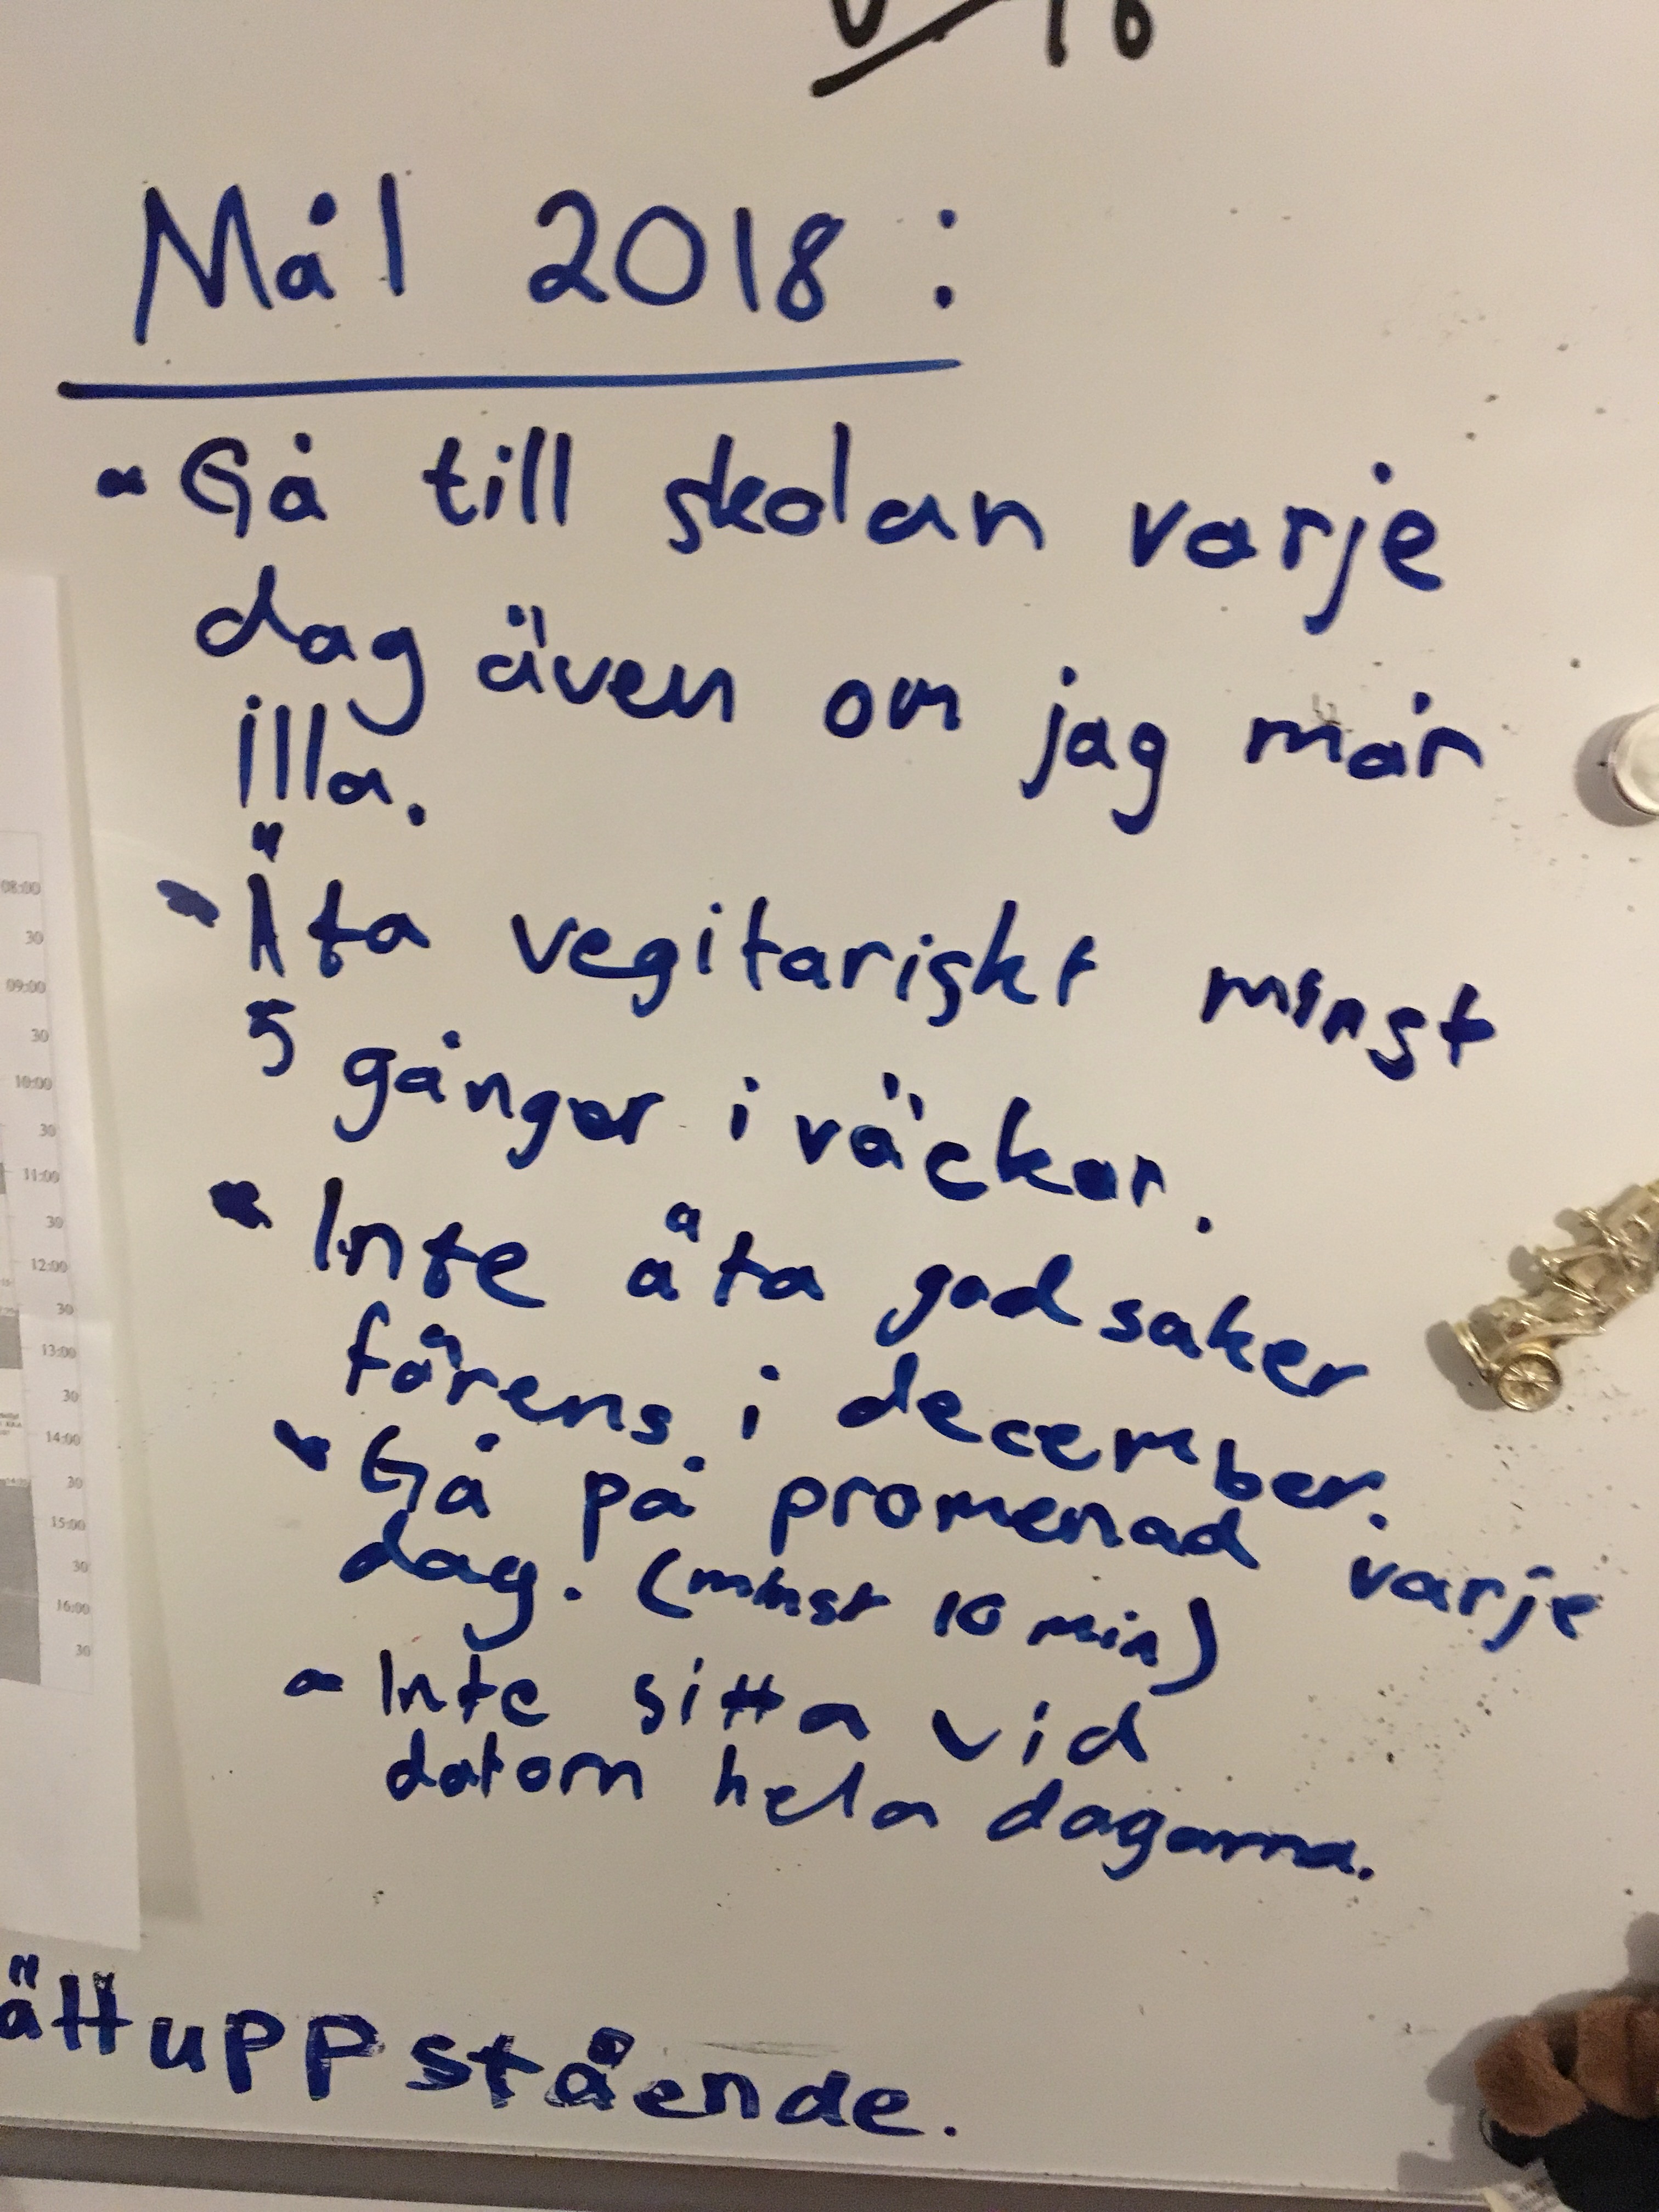 Mål 2018:
- Gå till skolan varje
dag även om jag mår
illa.
- Äta vegitariskt minst
5 gånger i väckan.
- Inte äta godsaker
förens i december.
- Gå på promenad varje
dag. (minst 10 min)
- Inte sitta vid
datorn hela dagarna.
ättuppstående.
08:00
30
09:00
30
10:00
30
11:00
30
12:00
30
13:00
30
14:00
30
15:00
30
16:00
30